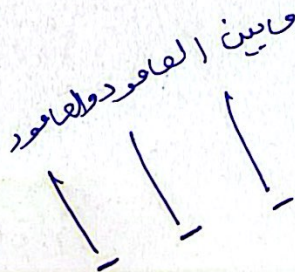 مابين العامود والعامود